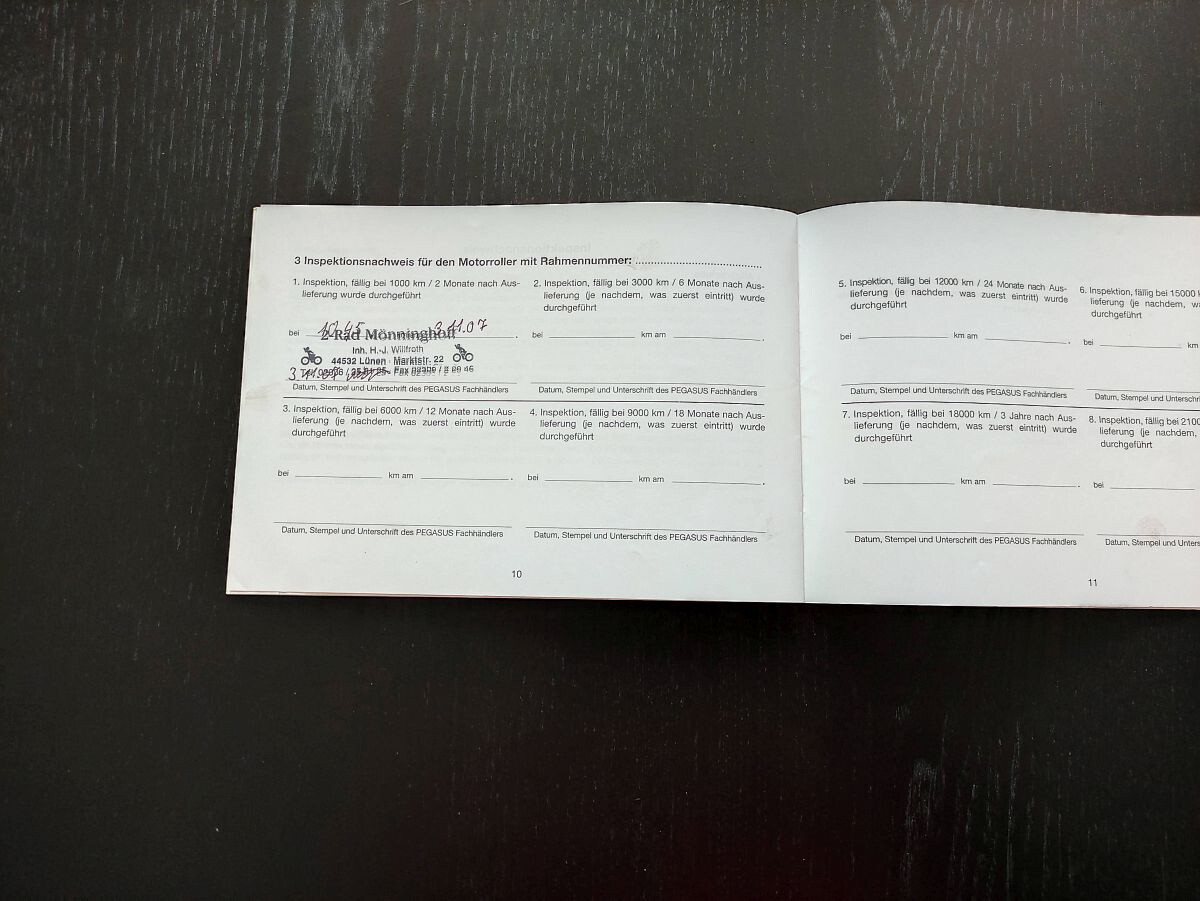 3 Inspektionsnachweis für den Motorroller mit Rahmennummer: ........................................
1. Inspektion, fällig bei 1000 km / 2 Monate nach Aus-
lieferung wurde durchgeführt
bei 3.11.07
2-Rad Mönninghoff
Inh. H.-J. Willfroth
44532 Lünen · Marktstr. 22
3.11.07
Datum, Stempel und Unterschrift des PEGASUS Fachhändlers
2. Inspektion, fällig bei 3000 km / 6 Monate nach Aus-
lieferung (je nachdem, was zuerst eintritt) wurde
durchgeführt
bei ____________ km am ____________ .
Datum, Stempel und Unterschrift des PEGASUS Fachhändlers
3. Inspektion, fällig bei 6000 km / 12 Monate nach Aus-
lieferung (je nachdem, was zuerst eintritt) wurde
durchgeführt
bei ____________ km am ____________ .
Datum, Stempel und Unterschrift des PEGASUS Fachhändlers
4. Inspektion, fällig bei 9000 km / 18 Monate nach Aus-
lieferung (je nachdem, was zuerst eintritt) wurde
durchgeführt
bei ____________ km am ____________ .
Datum, Stempel und Unterschrift des PEGASUS Fachhändlers
10
5. Inspektion, fällig bei 12000 km / 24 Monate nach Aus-
lieferung (je nachdem, was zuerst eintritt) wurde
durchgeführt
bei ____________ km am ____________ .
Datum, Stempel und Unterschrift des PEGASUS Fachhändlers
6. Inspektion, fällig bei 15000
lieferung (je nachdem,
durchgeführt
bei ____________ km
Datum, Stempel und Unterschrift
7. Inspektion, fällig bei 18000 km / 3 Jahre nach Aus-
lieferung (je nachdem, was zuerst eintritt) wurde
durchgeführt
bei ____________ km am ____________ .
Datum, Stempel und Unterschrift des PEGASUS Fachhändlers
8. Inspektion, fällig bei 2100
lieferung (je nachdem,
durchgeführt
bei ____________
Datum, Stempel und Unterschrift
11